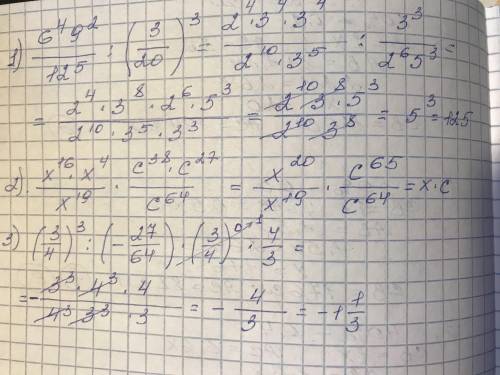 1) \frac{6^4 9^2}{12^5} : \left(\frac{3}{20}\right)^3 = \frac{2^4 \cdot 3^4 \cdot 3^4}{2^{10} \cdot 3^5} : \frac{3^3}{2^6 5^3} =
= \frac{2^4 \cdot 3^8 \cdot 2^6 \cdot 5^3}{2^{10} \cdot 3^5 \cdot 3^3} = \frac{2^{10} 3^8 \cdot 5^3}{2^{10} 3^8} = 5^3 = 125
2). \frac{x^{16} \cdot x^4}{x^{19}} \cdot \frac{c^{38} \cdot c^{27}}{c^{64}} = \frac{x^{20}}{x^{19}} \cdot \frac{c^{65}}{c^{64}} = x \cdot c
3) \left(\frac{3}{4}\right)^3 : \left(-\frac{27}{64}\right) \cdot \left(\frac{3}{4}\right)^{0 → 1} \cdot \frac{4}{3} =
= -\frac{3^3 \cdot 4^3 \cdot 4}{4^3 \cdot 3^3 \cdot 3} = -\frac{4}{3} = -1\frac{1}{3}